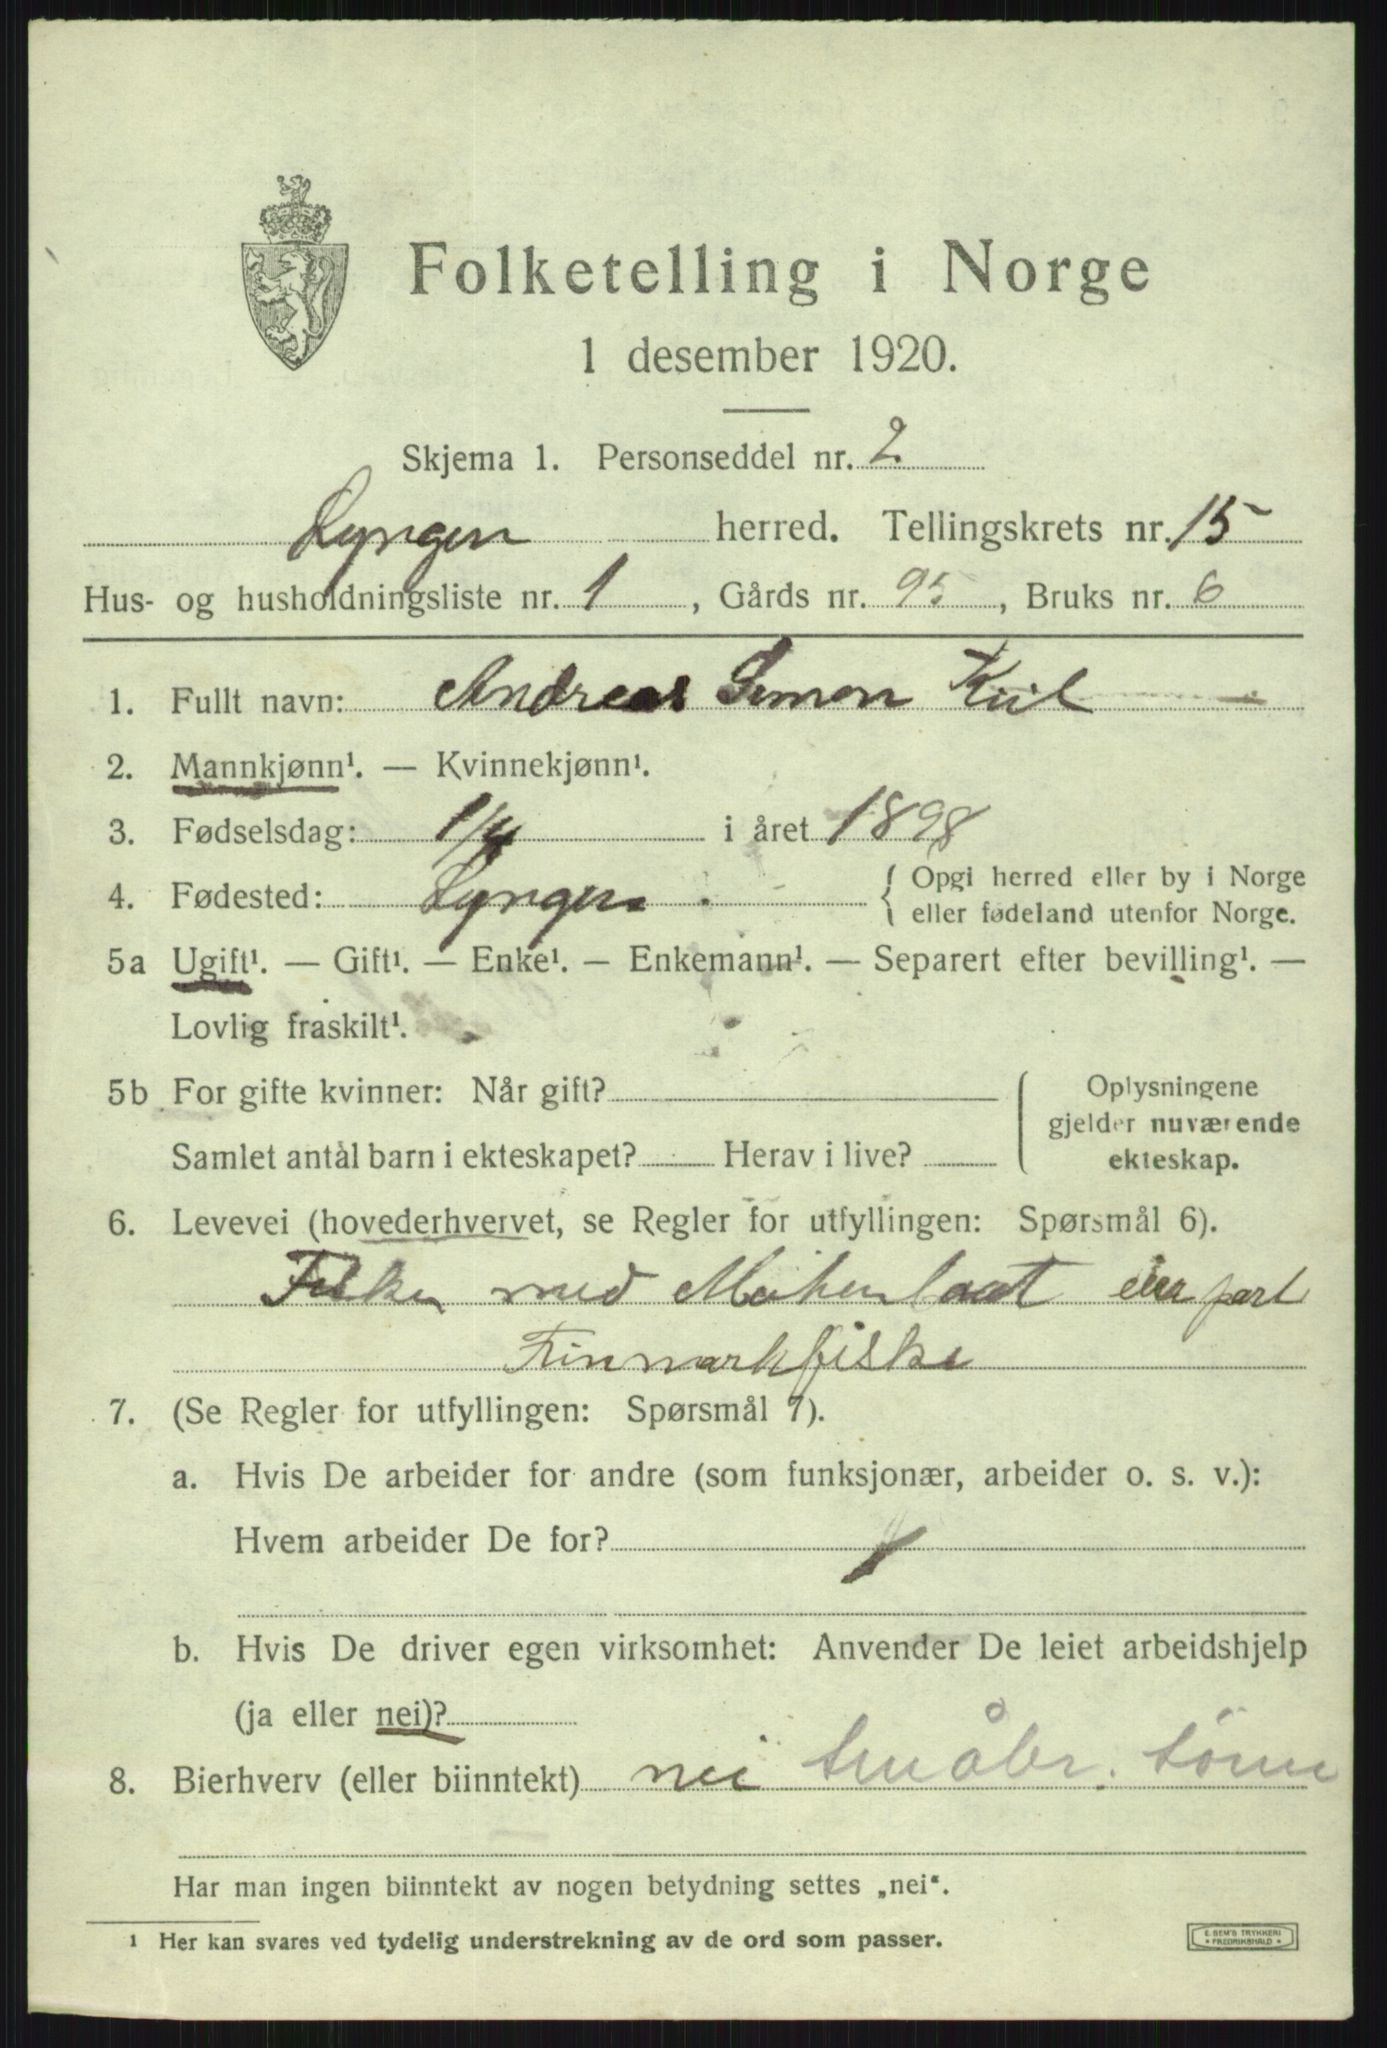 Folketelling i Norge
1 desember 1920.
Skjema 1. Personseddel nr. 2
Lyngen herred. Tellingskrets nr. 15
Hus- og husholdningsliste nr. 1, Gårds nr. 95, Bruks nr. 6
1. Fullt navn: Andreas Simon Kiil
2. Mannkjønn¹. — Kvinnekjønn¹.
3. Fødselsdag: 1/4 i året 1898
4. Fødested: Lyngen. { Opgi herred eller by i Norge
eller fødeland utenfor Norge.
5a Ugift¹. — Gift¹. — Enke¹. — Enkemann¹. — Separert efter bevilling¹. —
Lovlig fraskilt¹.
5b For gifte kvinner: Når gift?
Samlet antål barn i ekteskapet? Herav i live?
Oplysningene
gjelder nuværende
ekteskap.
6. Levevei (hovederhvervet, se Regler for utfyllingen: Spørsmål 6).
Fisker med eier part
Finmarkfiske
7. (Se Regler for utfyllingen: Spørsmål 7).
a. Hvis De arbeider for andre (som funksjonær, arbeider o. s. v.):
Hvem arbeider De for?
b. Hvis De driver egen virksomhet: Anvender De leiet arbeidshjelp
(ja eller nei)?
8. Bierhverv (eller biinntekt) nei Småbr. sønn
Har man ingen biinntekt av nogen betydning settes „nei“.
¹ Her kan svares ved tydelig understrekning av de ord som passer.
E. SEM'S TRYKKERI
* FREDRIKSHALD *